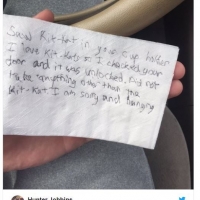 Saw Kit-Kat in your cup holder.
I love kit-kats so I checked your
door and it was unlocked. Did not
take anything other than the
Kit-Kat. I am sorry and hungry
Hunter Jobbins